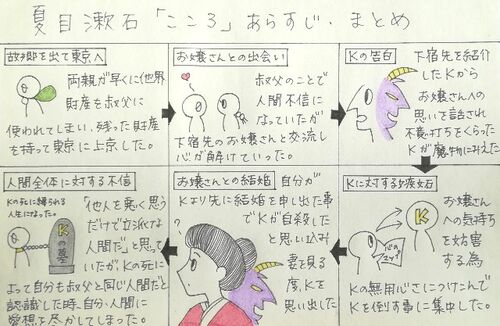 夏目漱石「こころ」あらすじ・まとめ
故郷を出て東京へ
両親が早くに他界
財産を叔父に
使われてしまい、残った財産
を持って東京に上京した。
お嬢さんとの出会い
叔父のことで
人間不信に
なっていたが
下宿先のお嬢さんと交流し
心が解けていった。
Kの告白
下宿先を紹介
したKから
お嬢さんへの
思いを話され
不意打ちをくらった
Kが魔物にみえた
Kに対する嫉妬
K
お嬢さん
への気持ち
を妨害
する為
心のスキ
Kの無用心さにつけこんで
Kを倒す事に集中した。
お嬢さんとの結婚
自分が
Kより先に結婚を申し出た事
でKが自殺した
と思い込み
妻を見
る度、Kを
思い出した
人間全体に対する不信
Kの死に縛られる
人生になった。
Kの墓
「他人を悪く思う
だけで立派な
人間だ」と思って
いたが、Kの死に
よって自分も叔父と同じ人間だと
認識した時、自分、人間に
愛想を尽かしてしまった。